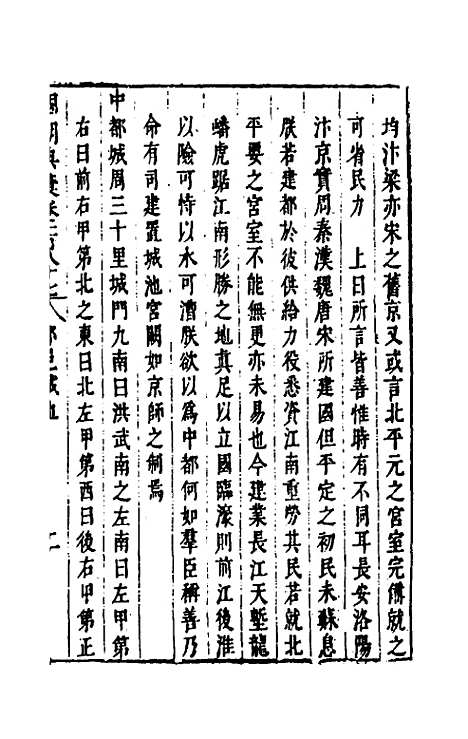 均汴梁亦宋之舊京又或言北平元之宮室完備就之
可省民力　上曰所言皆善惟時有不同耳長安洛陽
汴京實周秦漢魏唐宋所建國但平定之初民未蘇息
朕若建都於彼供給力役悉資江南重勞其民若就北
平要之宮室不能無更亦未易也今建業長江天塹龍
蟠虎踞江南形勝之地真足以立國臨濠則前江後淮
以險可恃以水可漕朕欲以為中都何如羣臣稱善乃
命有司建置城池宮闕如京師之制焉
中都城周三十里城門九南曰洪武南之左南曰左甲第
右曰前右甲第北之東曰北左甲第西曰後右甲第正